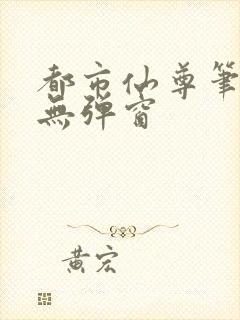 都市仙尊筆
無彈窗
黃宏